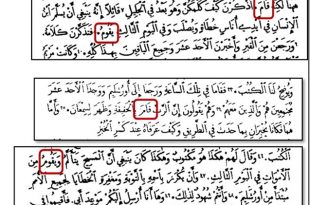 ههنا لكنه قَامَ. اذكرن كيف كلمكن وهو بعد في الجليل قائلا إنه ينبغي أن يسلم ابن
الإنسان في أيدي أناس خطاة ويصلب وفي اليوم الثالث يقوم. فتذكرن كلامه.
ورجعن من القبر وأخبرن الأحد عشر وجميع الباقين بهذا كله. وكانت مريم
ويوضح لنا الكتب. فقاما في تلك الساعة ورجعا إلى أورشليم ووجدا الأحد عشر
مجتمعين هم والذين معهم وهم يقولون إن الرب قام بالحقيقة وظهر لسمعان. وأما
هما فكانا يخبران بما حدث في الطريق وكيف عرفاه عند كسر الخبز
الكتب. وقال لهم هكذا هو مكتوب وهكذا كان ينبغي أن المسيح يتألم ويقوم
من الأموات في اليوم الثالث. وأن يكرز باسمه بالتوبة ومغفرة الخطايا لجميع الأمم
مبتدأ من أورشليم. وأنتم شهود لذلك. وها أنا أرسل إليكم موعد أبي. فأقيموا في